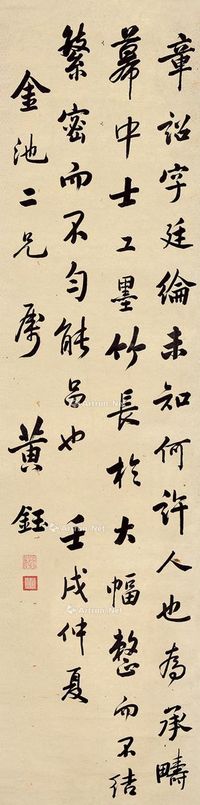 章詔字廷綸未知何許人也為承疇
幕中士工墨竹長於大幅整而不結
繁密而不勻能品也 壬戌仲夏
金池二兄屬 黃鈺